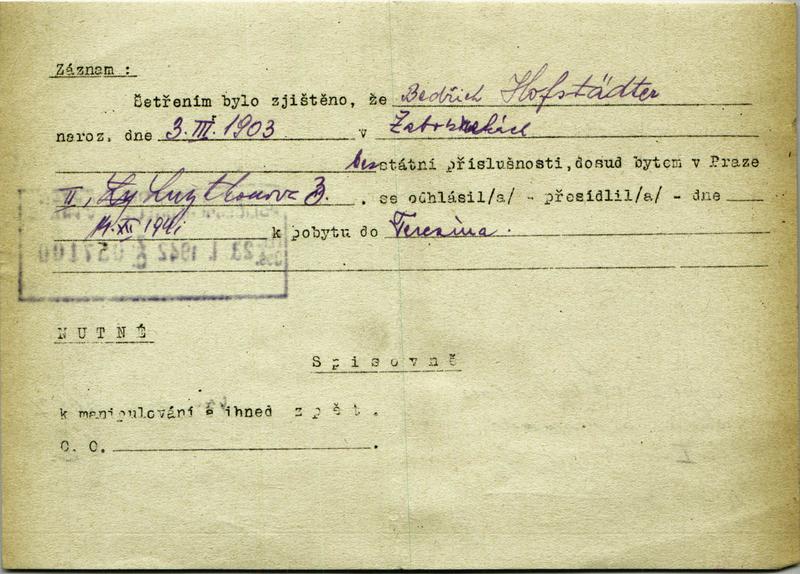 Záznam :
Šetřením bylo zjištěno, že Bedřich Hofstädter
naroz. dne 3. III. 1903 v
bezstátní příslušnosti, dosud bytem v Praze
II, 3. , se odhlásil/a/ - přesídlil/a/ - dne
14. XII 1941 k pobytu do Terezína.
23. I. 1942 057100
NUTNÉ
Spisovně
k manipulování a ihned zpět.
O. O.